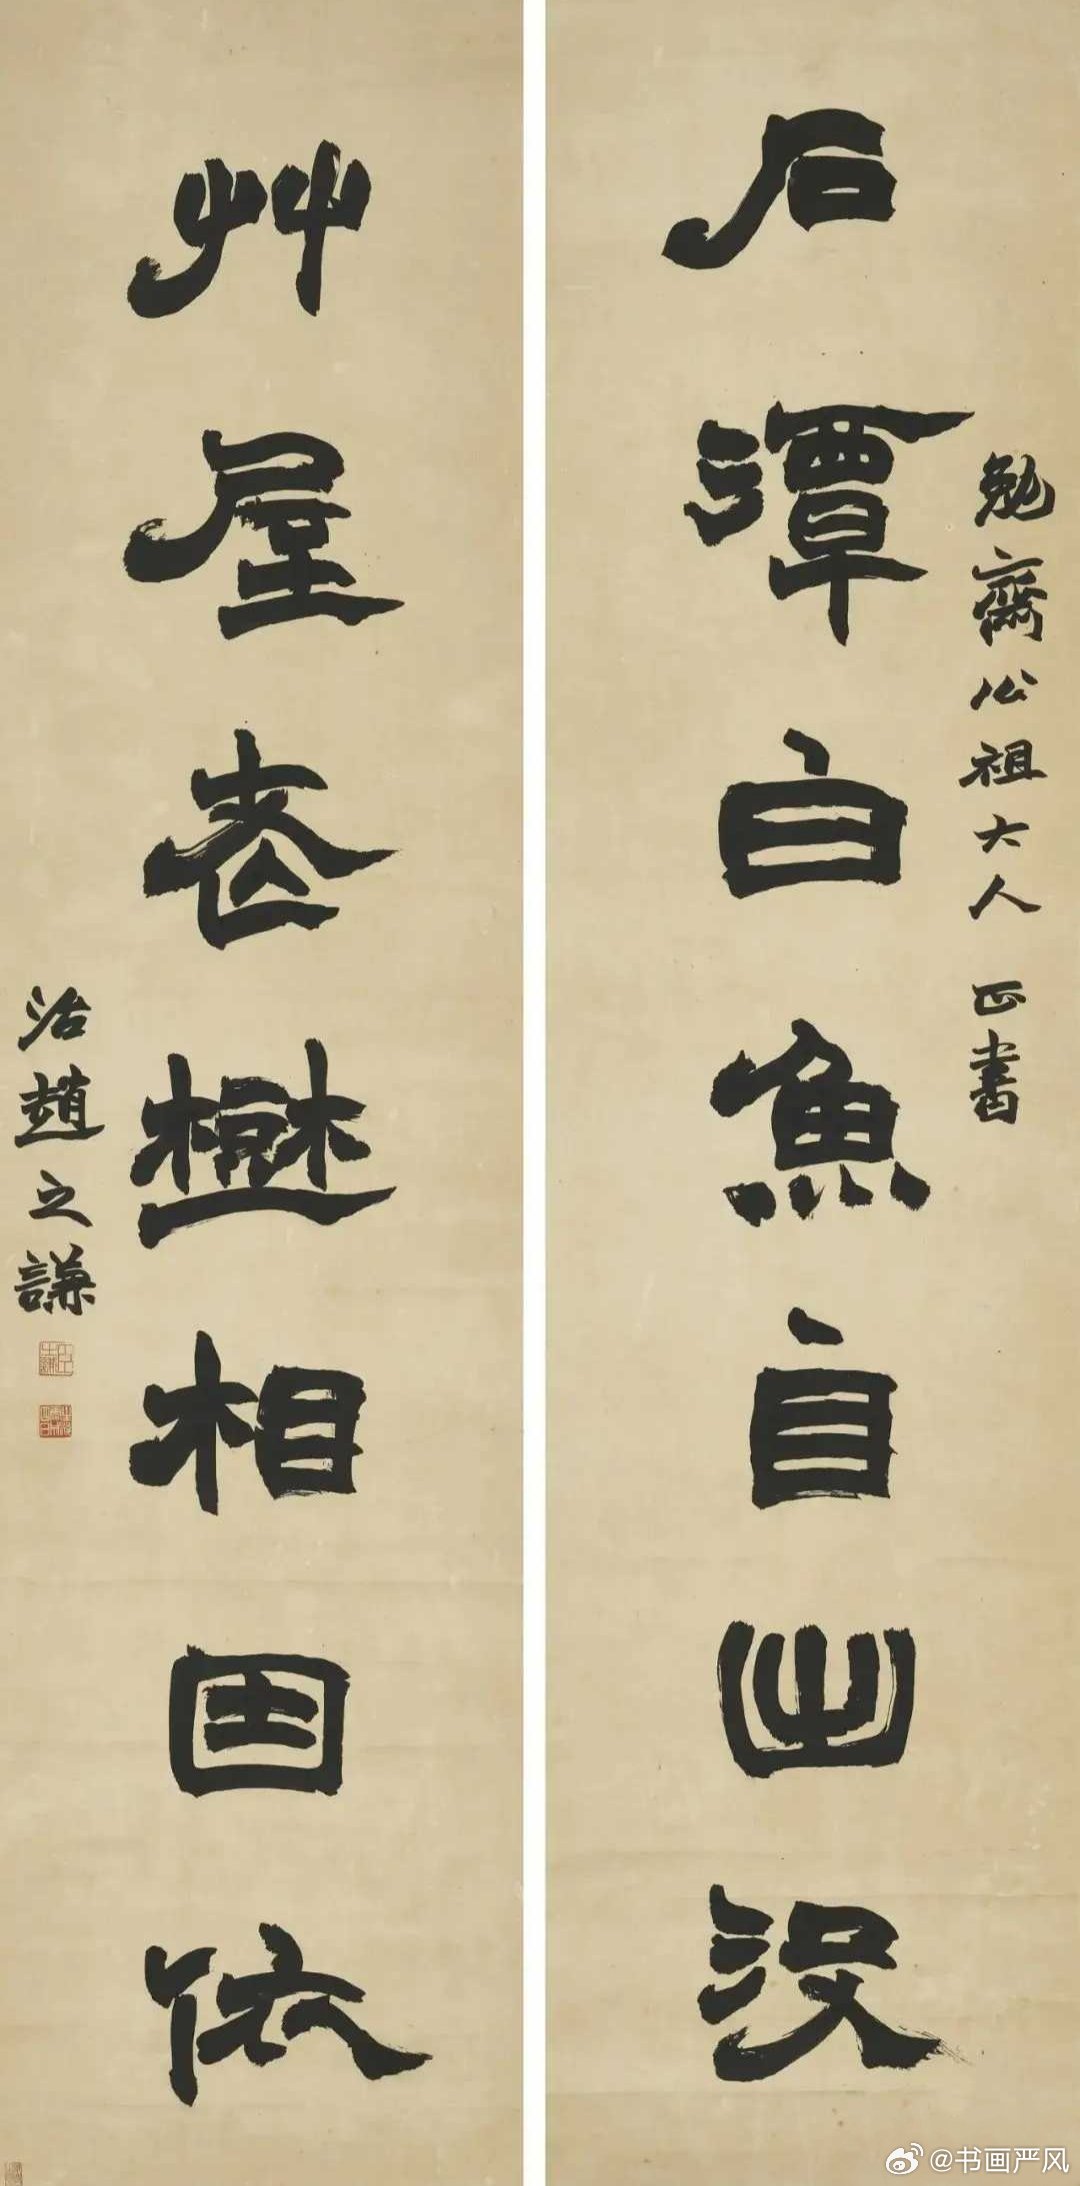 勉齋公祖大人 正書
石潭白魚自出没
艸屋老相因依
治趙之謙
@书画严风